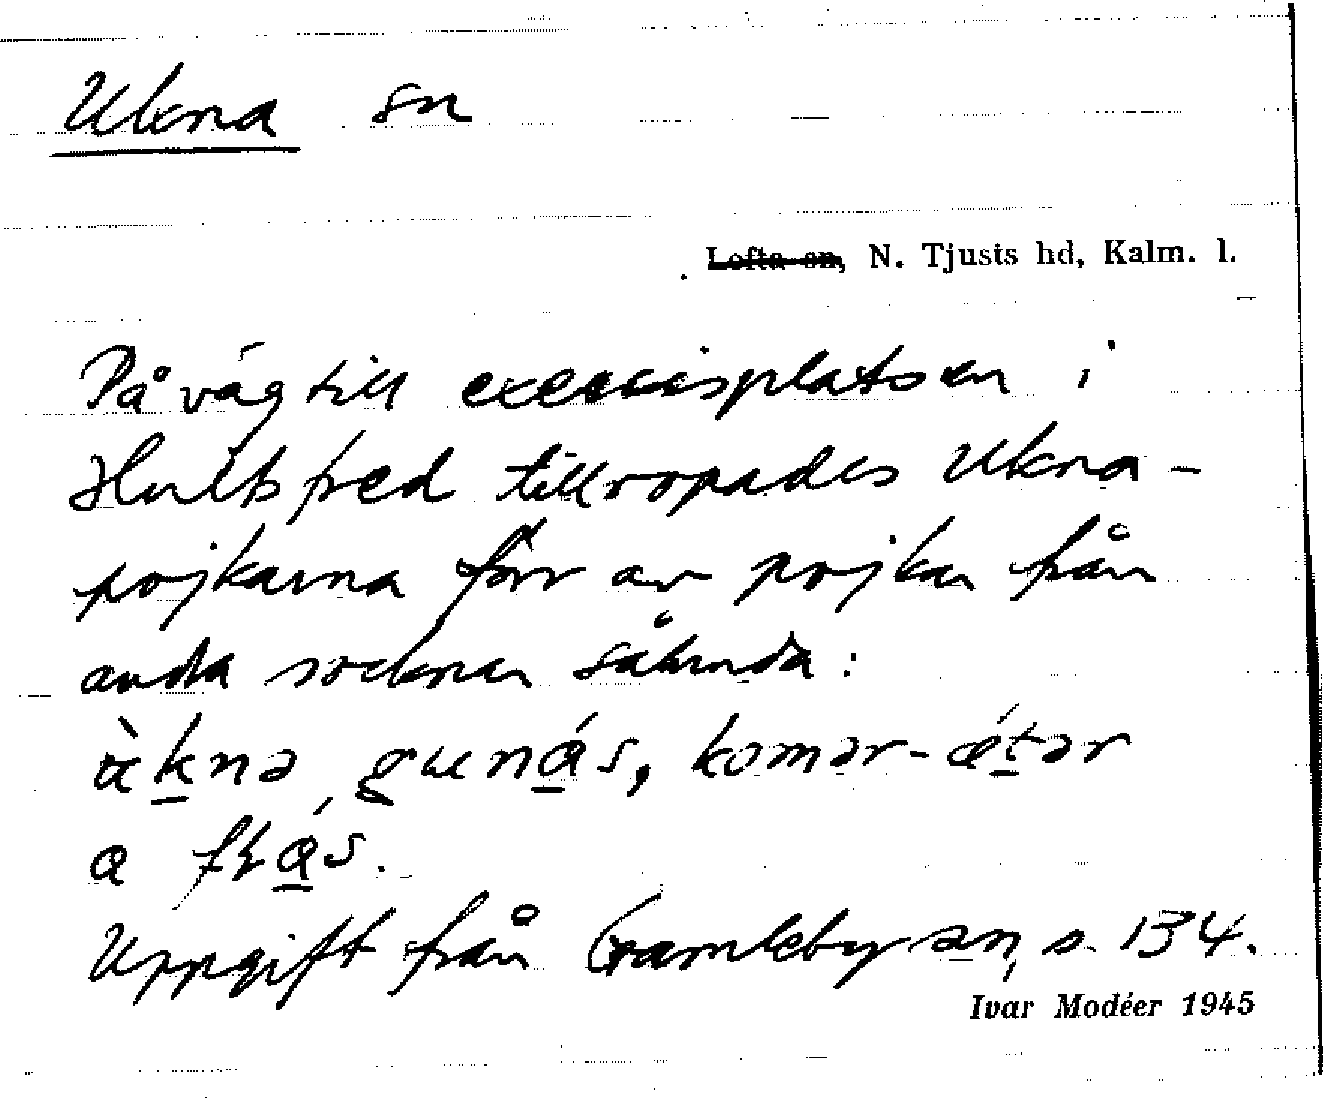 Ukna sn
Lofta sn, N. Tjusts hd, Kalm. l.
På väg till exercisplatsen i
Hultsfred tillropades Ukna-
pojkarna förr av pojkar från
andra socknar sålunda:
ùkna gunás, komər-ǽtər
a fläs.
Uppgift från Gamleby sn, s. 134.
Ivar Modéer 1945